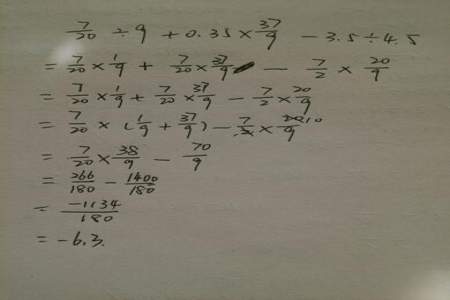 7/20 ÷ 9 + 0.35 × 37/9 - 3.5 ÷ 4.5
= 7/20 × 1/9 + 7/20 × 37/9 - 7/2 × 20/9
= 7/20 × 1/9 + 7/20 × 37/9 - 7/2 × 20/9
= 7/20 × (1/9 + 37/9) - 7/2 × 20 10/9
= 7/20 × 38/9 - 70/9
= 266/180 - 1400/180
= -1134/180
= -6.3.